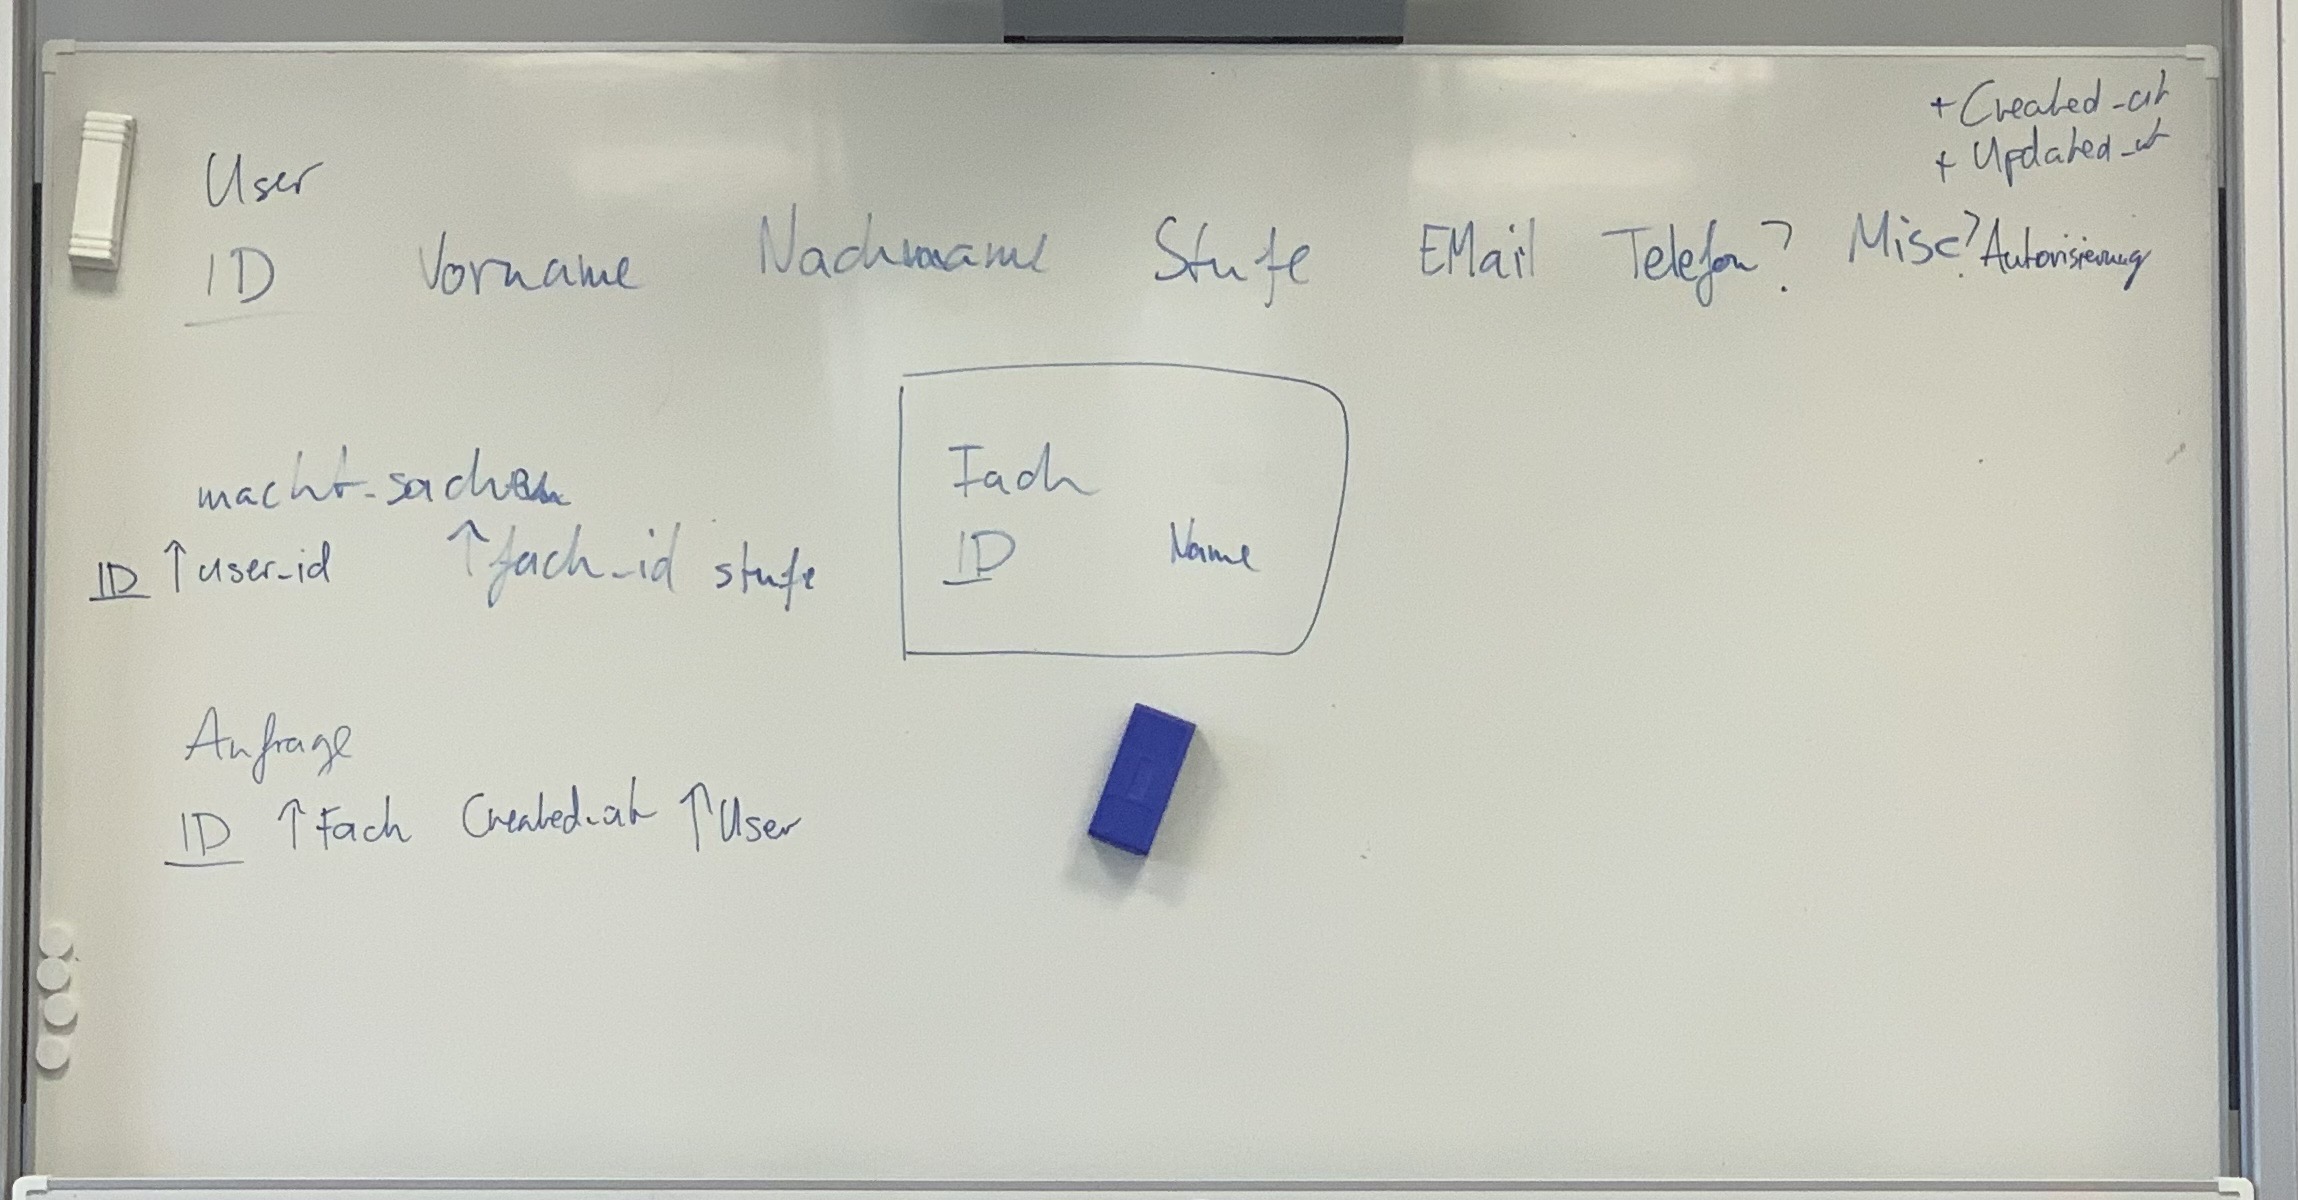 + Created_at
+ Updated_at
User
ID Vorname Nachname Stufe EMail Telefon? Misc? Autorisierung
macht_sachen
ID ↑user_id ↑fach_id stufe
Fach
ID Name
Anfrage
ID ↑Fach Created_at ↑User